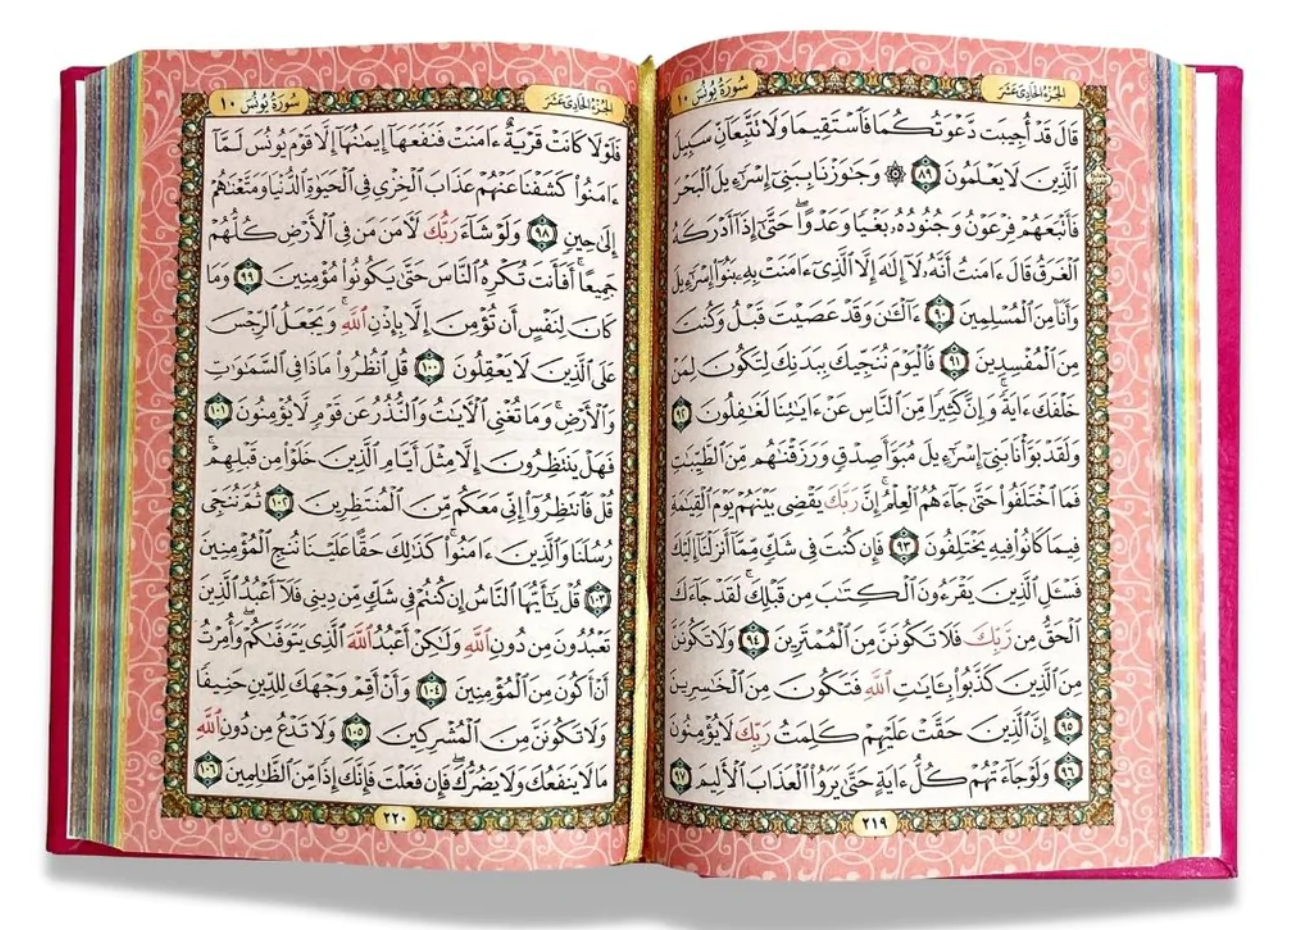 سُورَةُ يُونُسَ ١٠
الجُزْءُ الحَادِىَ عَشَرَ
قَالَ قَدْ أُجِيبَت دَّعْوَتُكُمَا فَٱسْتَقِيمَا وَلَا تَتَّبِعَآنِّ سَبِيلَ
ٱلَّذِينَ لَا يَعْلَمُونَ ٨٩ ۞ وَجَٰوَزْنَا بِبَنِىٓ إِسْرَٰٓءِيلَ ٱلْبَحْرَ
فَأَتْبَعَهُمْ فِرْعَوْنُ وَجُنُودُهُۥ بَغْيًا وَعَدْوًا ۖ حَتَّىٰٓ إِذَآ أَدْرَكَهُ
ٱلْغَرَقُ قَالَ ءَامَنتُ أَنَّهُۥ لَآ إِلَٰهَ إِلَّا ٱلَّذِىٓ ءَامَنَتْ بِهِۦ بَنُوٓا۟ إِسْرَٰٓءِيلَ
وَأَنَا۠ مِنَ ٱلْمُسْلِمِينَ ٩٠ ءَآلْـَٰٔنَ وَقَدْ عَصَيْتَ قَبْلُ وَكُنتَ
مِنَ ٱلْمُفْسِدِينَ ٩١ فَٱلْيَوْمَ نُنَجِّيكَ بِبَدَنِكَ لِتَكُونَ لِمَنْ
خَلْفَكَ ءَايَةً ۚ وَإِنَّ كَثِيرًا مِّنَ ٱلنَّاسِ عَنْ ءَايَٰتِنَا لَغَٰفِلُونَ ٩٢
وَلَقَدْ بَوَّأْنَا بَنِىٓ إِسْرَٰٓءِيلَ مُبَوَّأَ صِدْقٍ وَرَزَقْنَٰهُم مِّنَ ٱلطَّيِّبَٰتِ
فَمَا ٱخْتَلَفُوا۟ حَتَّىٰ جَآءَهُمُ ٱلْعِلْمُ ۚ إِنَّ رَبَّكَ يَقْضِى بَيْنَهُمْ يَوْمَ ٱلْقِيَٰمَةِ
فِيمَا كَانُوا۟ فِيهِ يَخْتَلِفُونَ ٩٣ فَإِن كُنتَ فِى شَكٍّ مِّمَّآ أَنزَلْنَآ إِلَيْكَ
فَسْـَٔلِ ٱلَّذِينَ يَقْرَءُونَ ٱلْكِتَٰبَ مِن قَبْلِكَ ۚ لَقَدْ جَآءَكَ
ٱلْحَقُّ مِن رَّبِّكَ فَلَا تَكُونَنَّ مِنَ ٱلْمُمْتَرِينَ ٩٤ وَلَا تَكُونَنَّ
مِنَ ٱلَّذِينَ كَذَّبُوا۟ بِـَٔايَٰتِ ٱللَّهِ فَتَكُونَ مِنَ ٱلْخَٰسِرِينَ
٩٥ إِنَّ ٱلَّذِينَ حَقَّتْ عَلَيْهِمْ كَلِمَتُ رَبِّكَ لَا يُؤْمِنُونَ
٩٦ وَلَوْ جَآءَتْهُمْ كُلُّ ءَايَةٍ حَتَّىٰ يَرَوُا۟ ٱلْعَذَابَ ٱلْأَلِيمَ ٩٧
٢١٩
سُورَةُ يُونُسَ ١٠
الجُزْءُ الحَادِىَ عَشَرَ
فَلَوْلَا كَانَتْ قَرْيَةٌ ءَامَنَتْ فَنَفَعَهَآ إِيمَٰنُهَآ إِلَّا قَوْمَ يُونُسَ لَمَّآ
ءَامَنُوا۟ كَشَفْنَا عَنْهُمْ عَذَابَ ٱلْخِزْىِ فِى ٱلْحَيَوٰةِ ٱلدُّنْيَا وَمَتَّعْنَٰهُمْ
إِلَىٰ حِينٍ ٩٨ وَلَوْ شَآءَ رَبُّكَ لَـَٔامَنَ مَن فِى ٱلْأَرْضِ كُلُّهُمْ
جَمِيعًا ۚ أَفَأَنتَ تُكْرِهُ ٱلنَّاسَ حَتَّىٰ يَكُونُوا۟ مُؤْمِنِينَ ٩٩ وَمَا
كَانَ لِنَفْسٍ أَن تُؤْمِنَ إِلَّا بِإِذْنِ ٱللَّهِ ۚ وَيَجْعَلُ ٱلرِّجْسَ
عَلَى ٱلَّذِينَ لَا يَعْقِلُونَ ١٠٠ قُلِ ٱنظُرُوا۟ مَاذَا فِى ٱلسَّمَٰوَٰتِ
وَٱلْأَرْضِ ۚ وَمَا تُغْنِى ٱلْـَٔايَٰتُ وَٱلنُّذُرُ عَن قَوْمٍ لَّا يُؤْمِنُونَ ١٠١
فَهَلْ يَنتَظِرُونَ إِلَّا مِثْلَ أَيَّامِ ٱلَّذِينَ خَلَوْا۟ مِن قَبْلِهِمْ ۚ
قُلْ فَٱنتَظِرُوٓا۟ إِنِّى مَعَكُم مِّنَ ٱلْمُنتَظِرِينَ ١٠٢ ثُمَّ نُنَجِّى
رُسُلَنَا وَٱلَّذِينَ ءَامَنُوا۟ ۚ كَذَٰلِكَ حَقًّا عَلَيْنَا نُنجِ ٱلْمُؤْمِنِينَ
١٠٣ قُلْ يَٰٓأَيُّهَا ٱلنَّاسُ إِن كُنتُمْ فِى شَكٍّ مِّن دِينِى فَلَآ أَعْبُدُ ٱلَّذِينَ
تَعْبُدُونَ مِن دُونِ ٱللَّهِ وَلَٰكِنْ أَعْبُدُ ٱللَّهَ ٱلَّذِى يَتَوَفَّىٰكُمْ ۖ وَأُمِرْتُ
أَنْ أَكُونَ مِنَ ٱلْمُؤْمِنِينَ ١٠٤ وَأَنْ أَقِمْ وَجْهَكَ لِلدِّينِ حَنِيفًا
وَلَا تَكُونَنَّ مِنَ ٱلْمُشْرِكِينَ ١٠٥ وَلَا تَدْعُ مِن دُونِ ٱللَّهِ
مَا لَا يَنفَعُكَ وَلَا يَضُرُّكَ ۖ فَإِن فَعَلْتَ فَإِنَّكَ إِذًا مِّنَ ٱلظَّٰلِمِينَ ١٠٦
٢٢٠